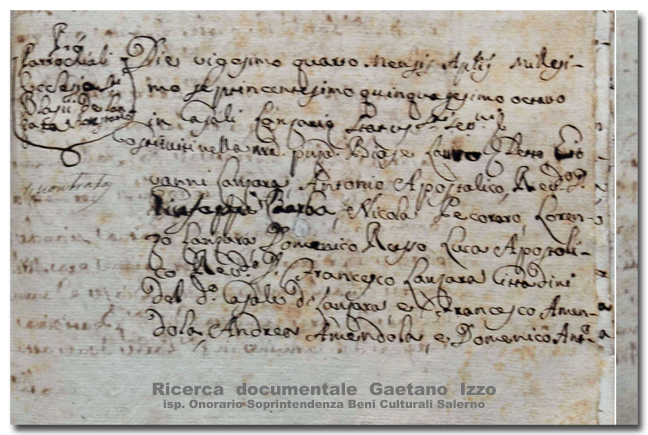 Pro
Parrochiali
Ecclesia S.
Blasii de Lan
zara
Die vigesimo quarto Mensis Aplis Millesi-
mo septincentesimo quinquagesimo octavo
in Casali Lanzarie
Costituiti nella Biase
vanni Lanzara, Antonio Apostolico, Rev.do D.
Giuseppe Barba, Nicola Pecoraro, Loren-
zo Lanzara Domenico Russo Luca Apostoli-
co Rev.do D. Francesco Lanzara Cittadini
del d.o Casale di Lanzara, e Francesco Amen-
dola, Andrea Amendola e Domenico
Ricerca documentale Gaetano Izzo
isp. Onorario Soprintendenza Beni Culturali Salerno